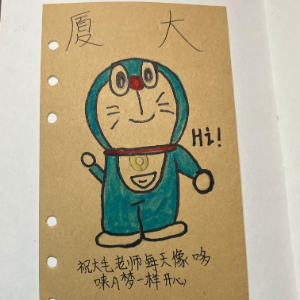 厦大
Hi!
祝大毛老师每天像哆
唻A梦一样开心